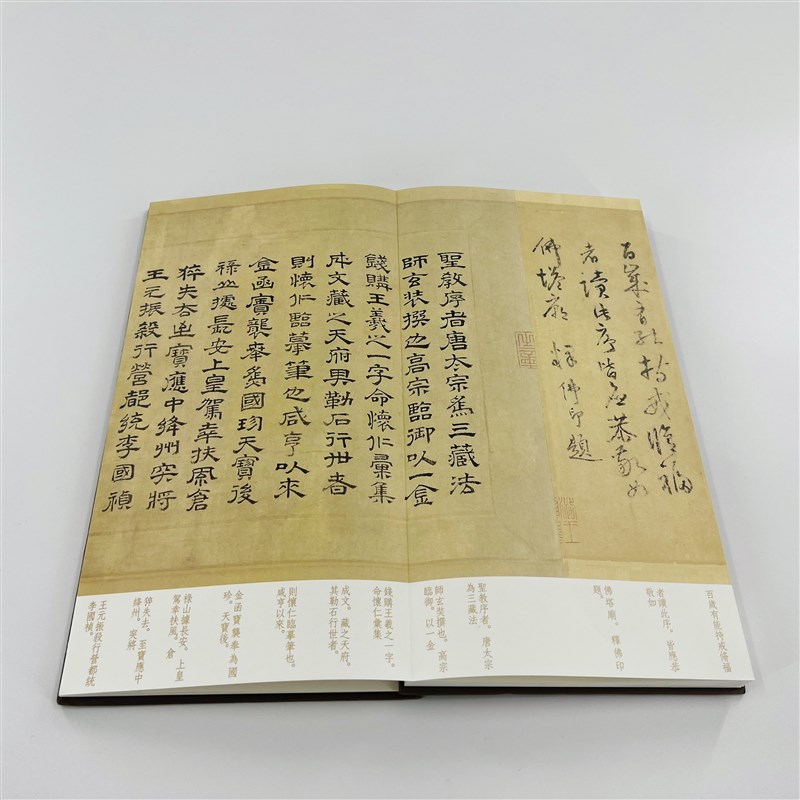 百歲有能持戒脩福
者讀此序皆應恭敬如
佛塔廟
釋佛印題
聖教序者唐太宗為三藏法
師玄奘撰也高宗臨御以一金
錢購王羲之一字命懷仁彙集
成文藏之天府具勒石行世者
則懷仁臨摹筆也咸亨以來
金函寶襲奉為國珍天寶後
祿山據長安上皇駕幸扶風倉
猝失去至寶應中絳州突將
王元振殺行營都統李國禎
百歲有能持戒脩福
者讀此序。皆應恭
敬如
佛塔廟。釋佛印
題。
聖教序者。唐太宗
為三藏法
師玄奘撰也。高宗
臨御。以一金
錢購王羲之一字。
命懷仁彙集
成文。藏之天府。
其勒石行世者。
則懷仁臨摹筆也。
咸亨以來。
金函寶襲奉為國
珍。天寶後。
祿山據長安。上皇
駕幸扶風。倉
猝失去。至寶應中
絳州。突將
王元振殺行營都統
李國禎。